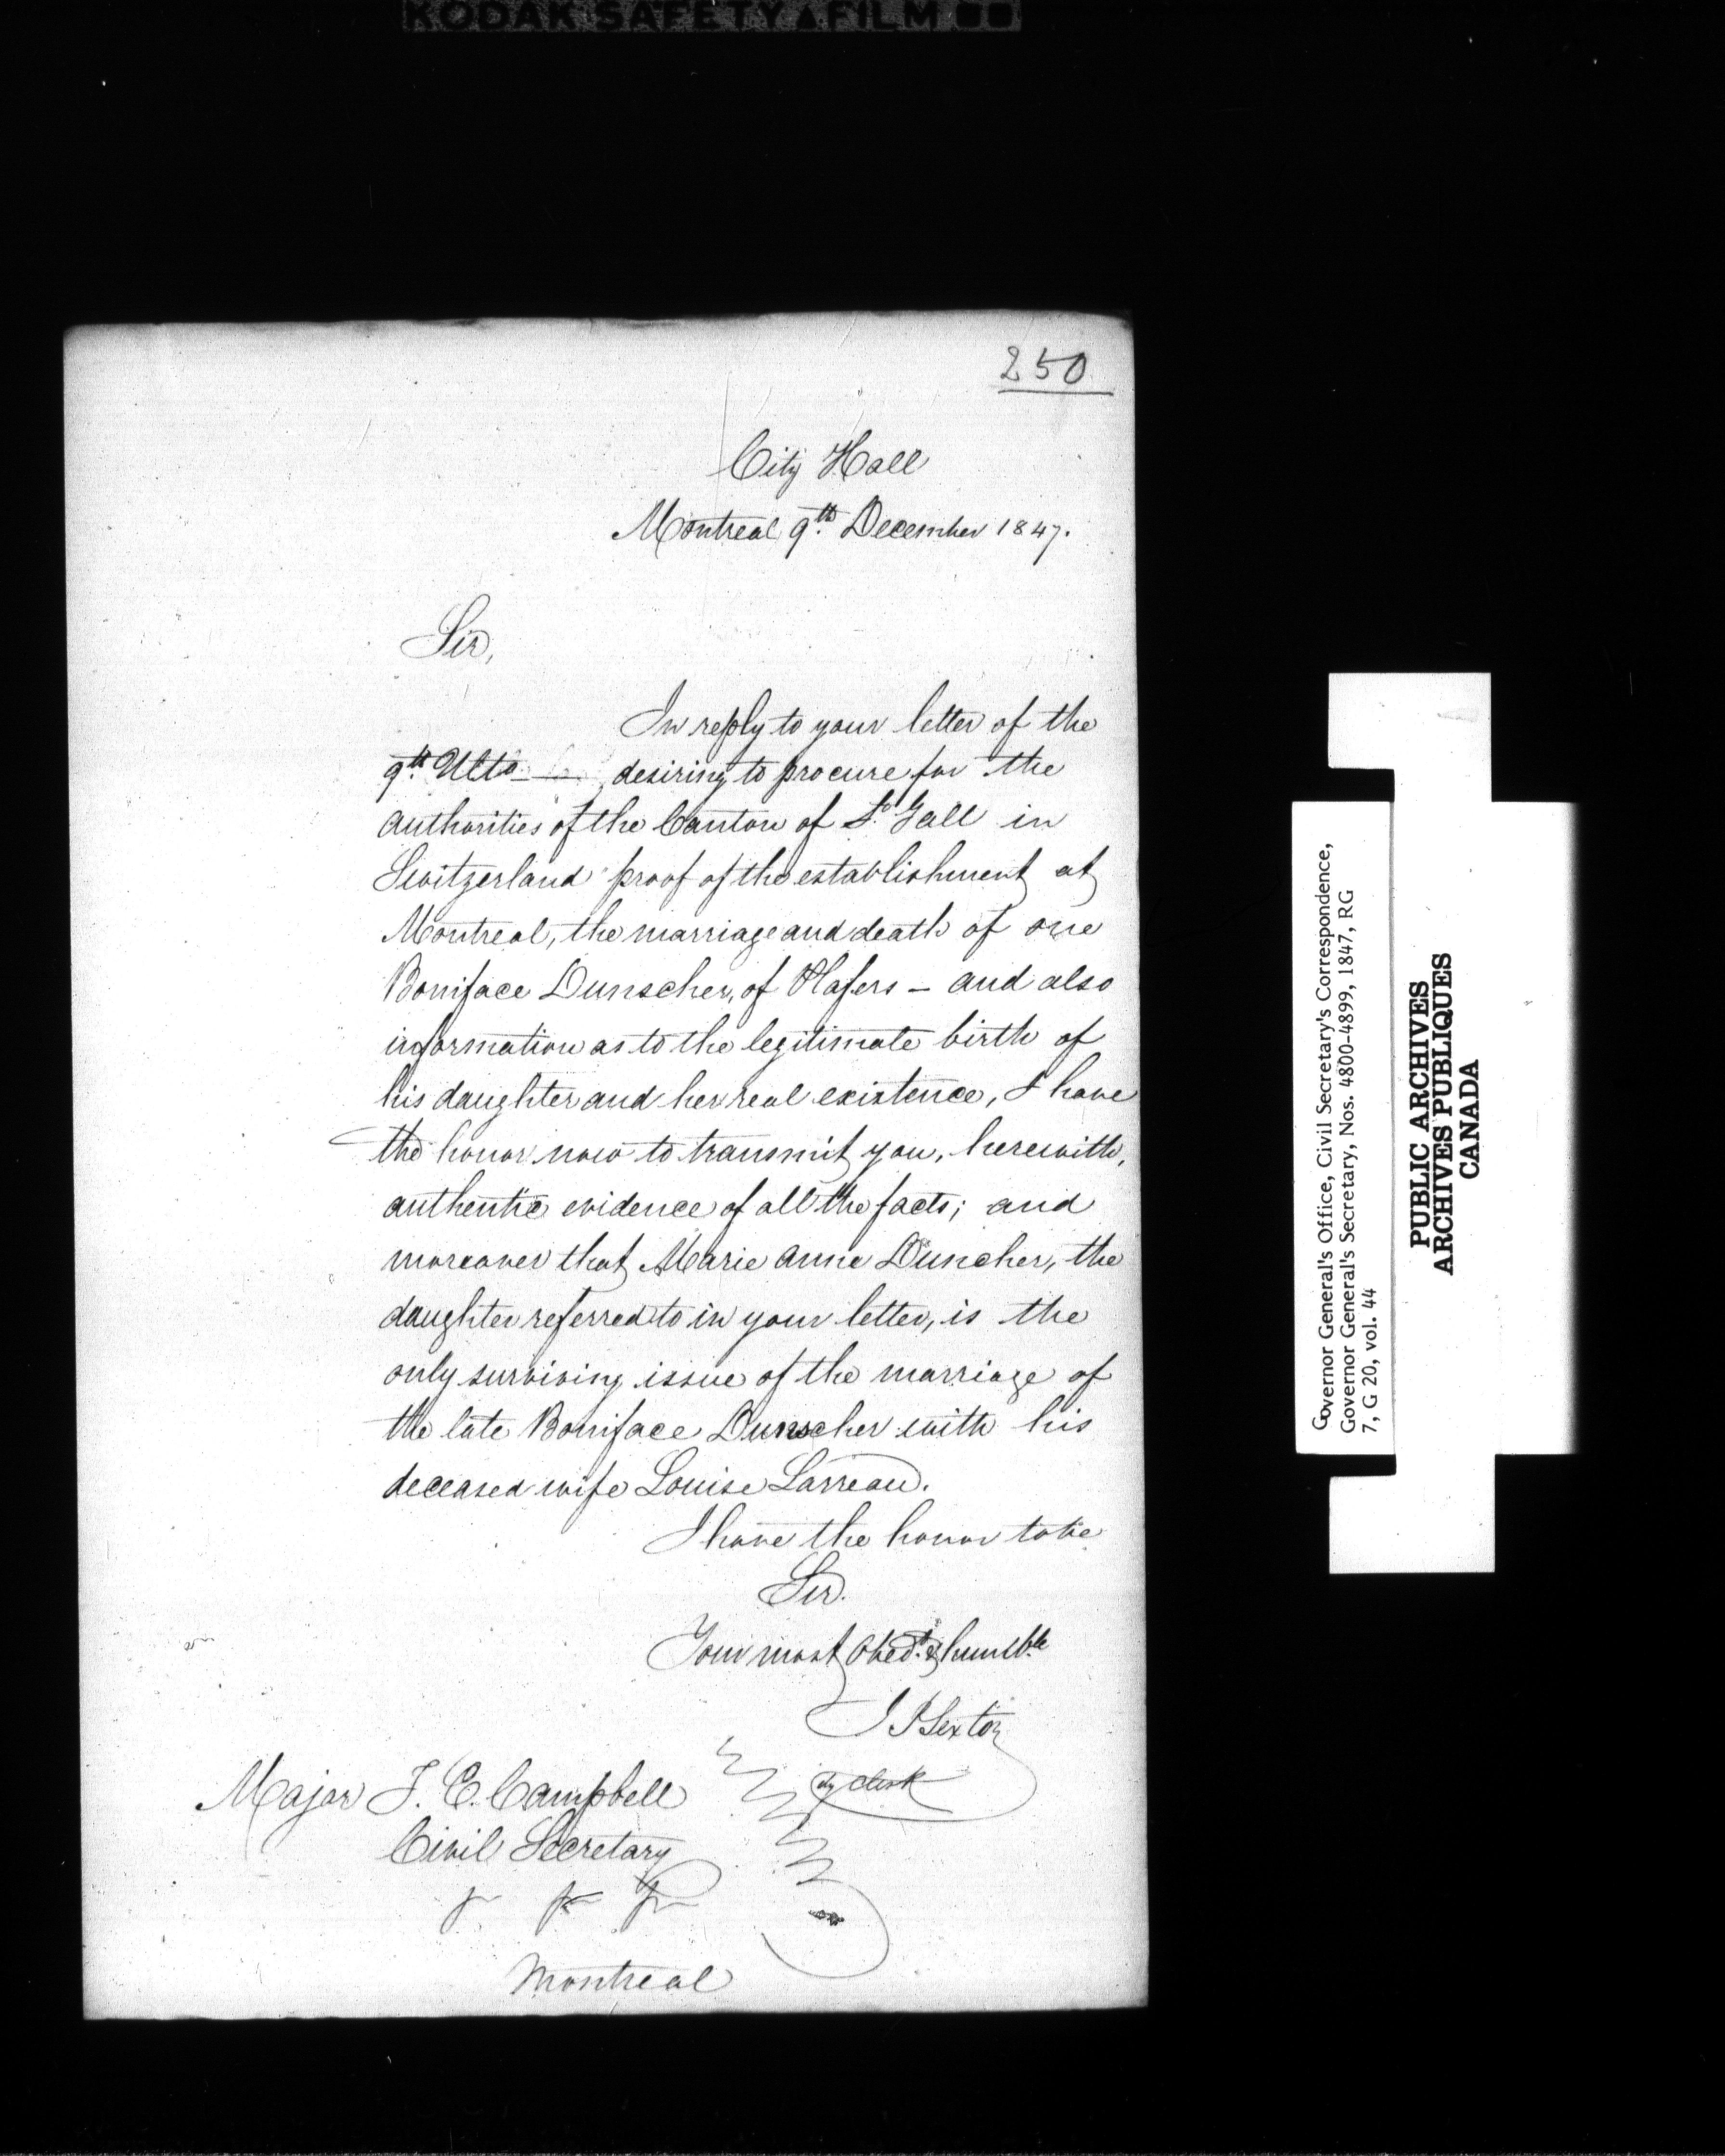 KODAK SAFETY FILM
250
City Hall
Montreal 9th December 1847.
Sir,
In reply to your letter of the
9th Ulto desiring to procure for the
authorities of the Canton of St Gall in
Switzerland proof of the establishment at
Montreal, the marriage and death of one
Boniface Dunscher, of Plafers – and also
information as to the legitimate birth of
his daughter and her real existence, I have
the honor now to transmit you, herewith,
authentic evidence of all the facts; and
moreover that Marie Anne Duncher, the
daughter referred to in your letter, is the
only surviving issue of the marriage of
the late Boniface Dunscher with his
deceased wife Louise Larreau.
I have the honor to be
Sir.
Your most Obedt & humble
J P Sexton
City Clerk
Major T. E. Campbell
Civil Secretary
Montreal
Governor General's Office, Civil Secretary's Correspondence,
Governor General's Secretary, Nos. 4800-4899, 1847, RG
7, G 20, vol. 44
PUBLIC ARCHIVES
ARCHIVES PUBLIQUES
CANADA